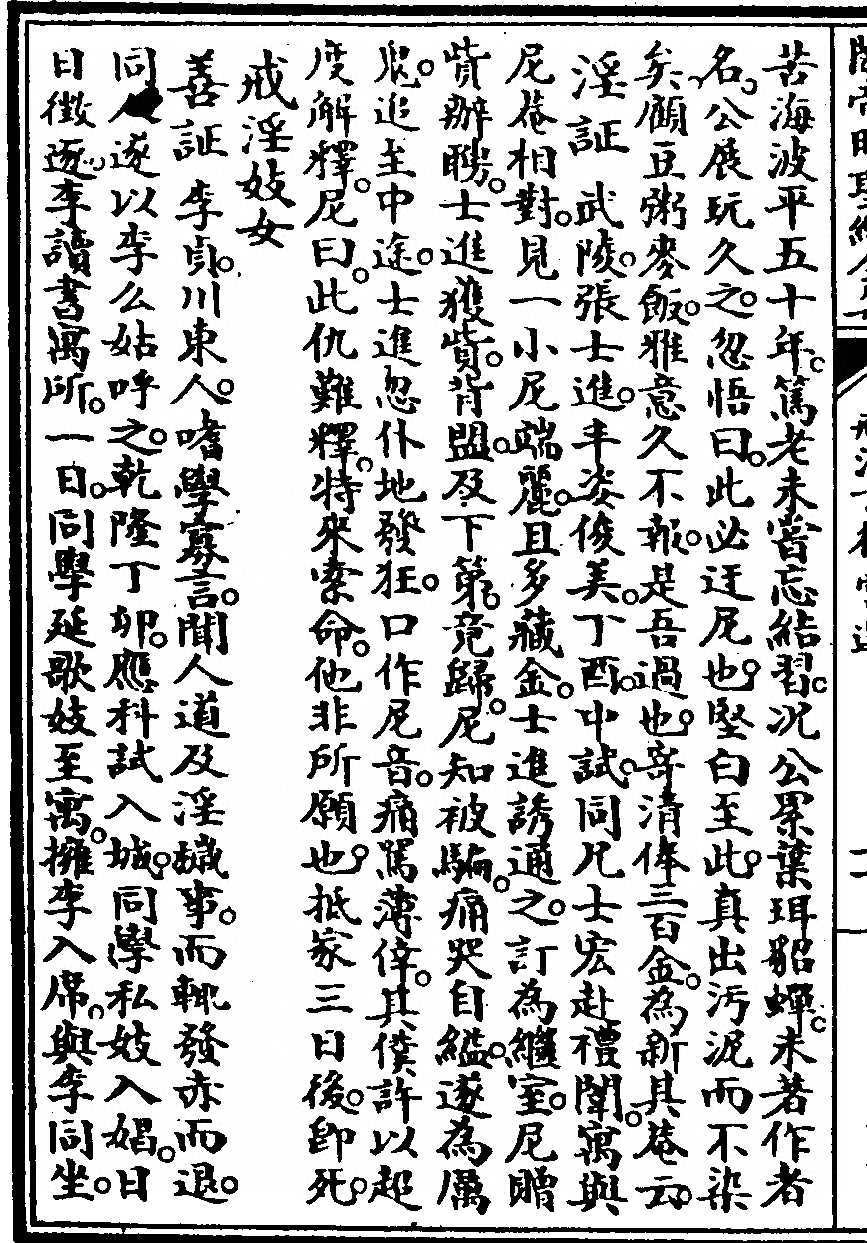 苦海波平五十年。篤老未嘗忘結習。況公累葉珥貂蟬。未著作者
名。公展玩久之。忽悟曰。此必迂尼也。堅白至此。真出汚泥而不染
矣。顧豆粥麥飯。雅意久不報。是吾過也。寄清俸三百金。為新其菴云。
淫証 武陵張士進。丰姿俊美。丁酉中試。同兄士宏赴禮闈。寓與
尼菴相對。見一小尼端麗。且多藏金。士進誘通之。訂為繼室。尼贈
貲辦聘。士進獲貲。背盟。及下第。竟歸。尼知被騙。痛哭自縊。遂為厲
鬼。追至中途。士進忽仆地發狂。口作尼音。痛罵薄倖。其僕許以超
度解釋。尼曰。此仇難釋。特來索命。他非所願也。抵家三日後。卽死。
戒淫妓女
善証 李貞。川東人。嗜學寡言。聞人道及淫穢事。而輒發赤而退。
同人遂以李么姑呼之。乾隆丁卯。應科試入城。同學私妓入娼。日
日徵逐。李讀書寓所。一日。同學延歌妓至寓。擁李入席。與李同坐。